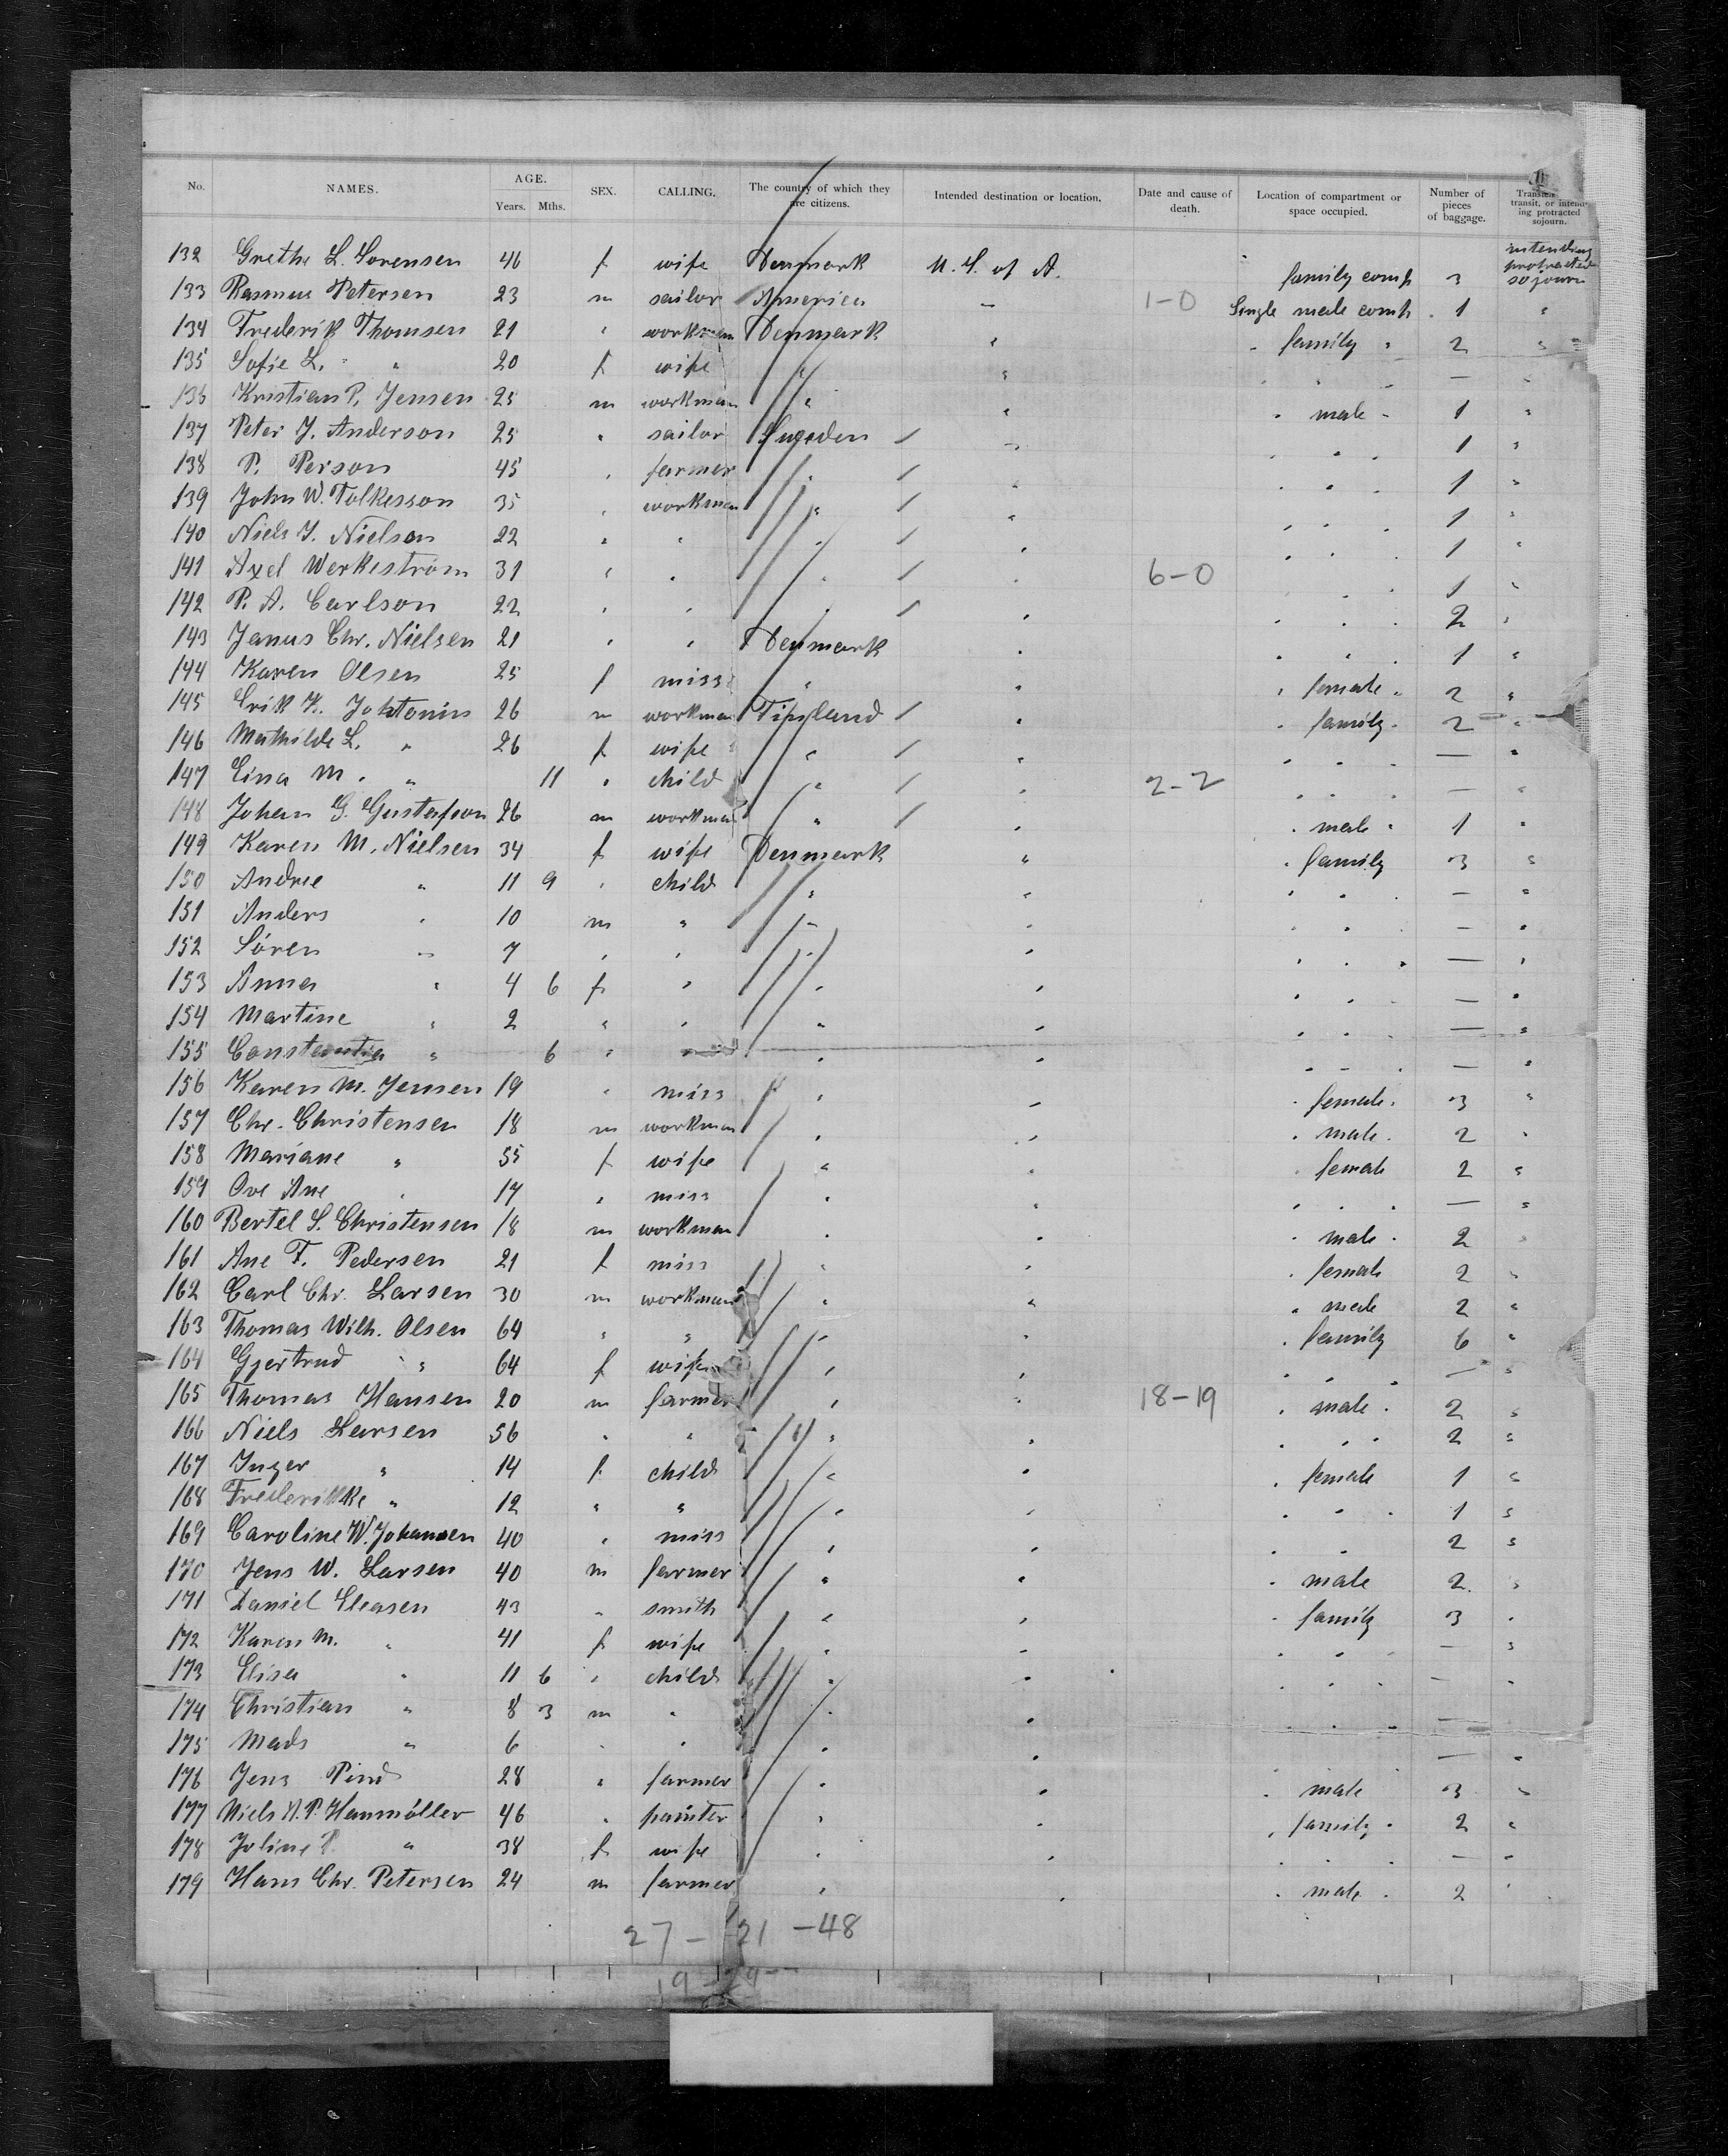 No. NAMES. AGE. Years. Mths. SEX. CALLING. The country of which they are citizens. Intended destination or location. Date and cause of death. Location of compartment or space occupied. Number of pieces of baggage. transit, or intending protracted sojourn.
132 Grethe L. Sorensen 46 f wife Denmark U. S. of A. family comp 3 intending protracted sojourn
133 Rasmus Petersen 23 m sailor America " 1-0 Single male comp. 1 "
134 Frederik Thomsen 21 " workman Denmark " " family " 2 "
135 Sofie L. " " 20 f wife " " " " " — "
136 Kristian P. Jensen 25 m workman " " " male " 1 "
137 Peter J. Anderson 25 " sailor Sweden / " " " " 1 "
138 P. Person 45 " farmer " / " " " " 1 "
139 John W. Folkesson 35 " workman " / " " " " 1 "
140 Niels J. Nielson 22 " " " / " " " " 1 "
141 Axel Werkeström 31 " " " / " 6-0 " " 1 "
142 P. A. Carlson 22 " " " / " " " " 2 "
143 Janus Chr. Nielsen 21 " " Denmark " " " " 1 "
144 Karen Olsen 25 f miss " " " female " 2 "
145 Erik K. 26 m workman Finland / " " family " 2 "
146 Mathilde L. " 26 f wife " / " " " " — "
147 Lina M. " 11 " child " / " 2-2 " " " — "
148 Johan G. Gustafson 26 m workman " / " " male " 1 "
149 Karen M. Nielsen 34 f wife Denmark " " family 3 "
150 Andree " 11 9 " child " " " " " — "
151 Anders " 10 m " " " " " — "
152 Sören " 7 " " " " " " " — "
153 Anna " 4 6 f " " " " " " — "
154 Martine " 2 " " " " " " " — "
155 Constantia " 6 " " " " " " " — "
156 Karen M. Jensen 19 " miss " " " female " 3 "
157 Chr. Christensen 18 m workman " " " male " 2 "
158 Mariane " 55 f wife " " " female 2 "
159 Ove Ane " 17 " miss " " " " " — "
160 Bertel S. Christensen 18 m workman " " " male " 2 "
161 Ane F. Pedersen 21 f miss " " " female 2 "
162 Carl Chr. Larsen 30 m workman " " " male 2 "
163 Thomas Wilh. Olsen 64 " " " " " family 6 "
164 Gjertrud " 64 f wife " " " " " — "
165 Thomas Hansen 20 m farmer " " 18-19 " male " 2 "
166 Niels Larsen 56 " " " " " " " 2 "
167 Inger " 14 f child " " " female 1 "
168 Frederikke " 12 " " " " " " " 1 "
169 Caroline W. Johansen 40 " miss " " " " 2 "
170 Jens W. Larsen 40 m farmer " " " male 2 "
171 Daniel Eleasen 43 " smith " " " family 3 "
172 Karen M. " 41 f wife " " " " " — "
173 Elisa " 11 6 " child " " " " " — "
174 Christian " 8 3 m " " " " " " —
175 Mads " 6 " " " " — "
176 Jens Pind 28 " farmer " " " male 3 "
177 Niels A. P. Hanmöller 46 " painter " " " family " 2 "
178 Joline P. " 38 f wife " " " " " — "
179 Hans Chr. Petersen 24 m farmer " " " male " 2 "
27 - 21 - 48
19 - 29